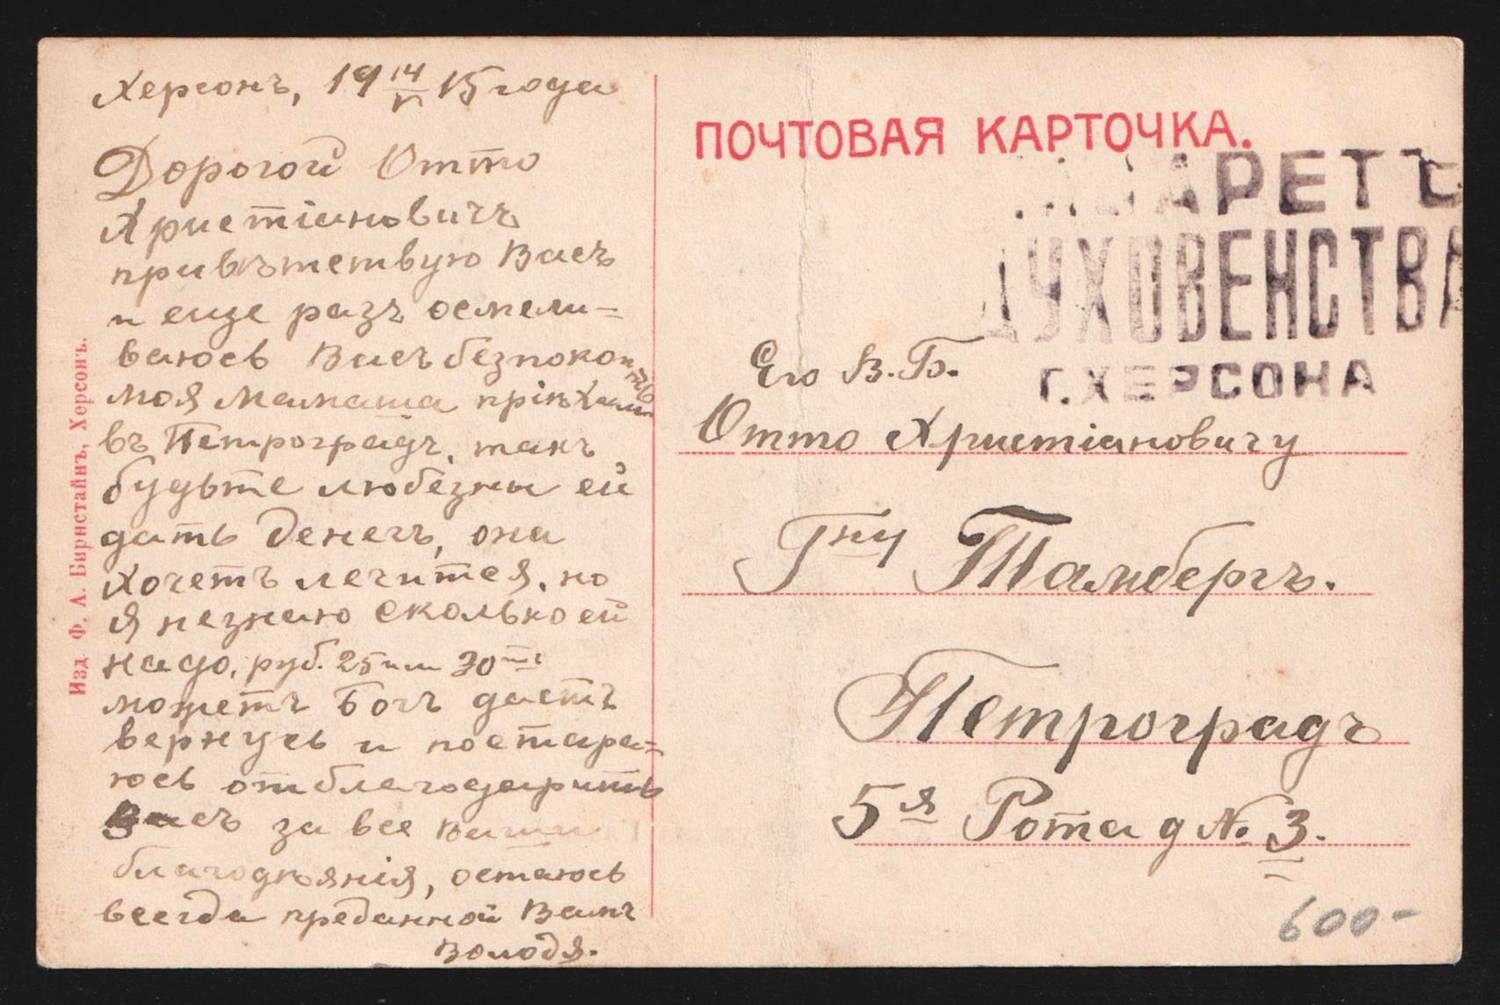 Херсонъ, 19 14/V 15 года
Дорогой Отто
Христіановичъ
привѣтствую Васъ
и еще разъ осмели-
ваюсь Васъ безпокоить
моя мамаша пріѣхали
въ Петроградъ, такъ
будьте любезны ей
дать денегъ, она
хочетъ лечится, но
я незнаю сколько ей
надо, руб. 25 или 30ть
можетъ Богъ дастъ
вернусь и постара-
юсь отблагодарить
Васъ за все Ваши
благодѣянія, остаюсь
всегда преданной Вамъ
Володя.
Изд. Ф. А. Бирнстайнъ, Херсонъ.
ПОЧТОВАЯ КАРТОЧКА.
АРЕТЪ
ДУХОВЕНСТВА
Г. ХЕРСОНА
Его В. Б.
Отто Христіановичу
Гну Тамбергъ.
Петроградъ
5я Рота д № 3.
600-